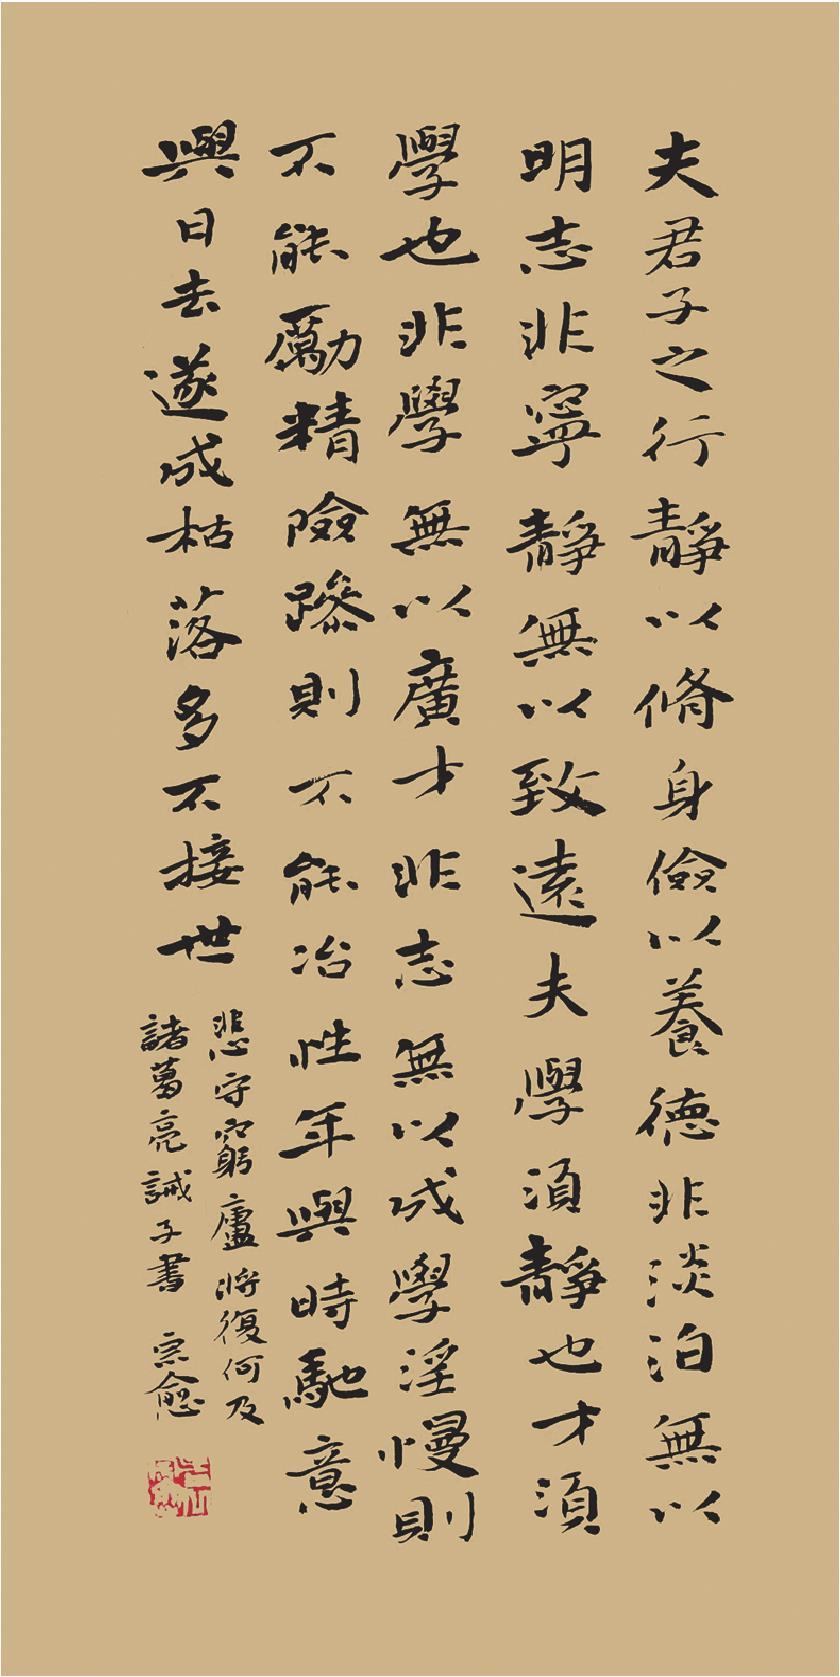 夫君子之行靜以脩身儉以養德非淡泊無以
明志非寧靜無以致遠夫學須靜也才須
學也非學無以廣才非志無以成學淫慢則
不能勵精險躁則不能冶性年與時馳意
與日去遂成枯落多不接世
悲守窮廬將復何及
諸葛亮誡子書 宗愈